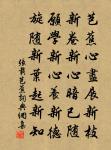 芭蕉心盡展新枝
新卷新心暗已隨
願學新心養新德
旋隨新葉起新知
張載芭蕉詞典網書